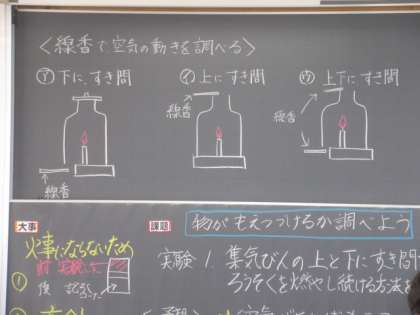 ＜線香で空気の動きを調べる＞
㋐下に、すき間
㋑上に、すき間
㋒上下にすき間
線香
線香
線香
大事
火事にならないため
①
課題
物がもえつづけるか調べよう
実験1. 集気びんの上と下にすき間
ろうそくを燃やし続ける方法を